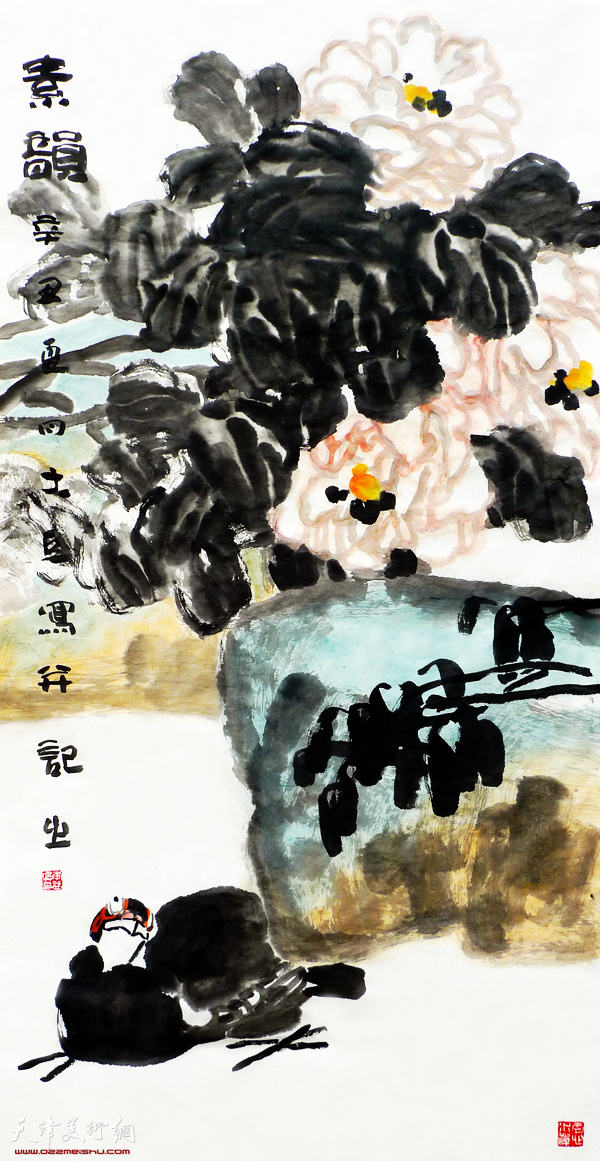 素韻 辛丑夏 四土 寫并記之
天津美術網
www.022meishu.com